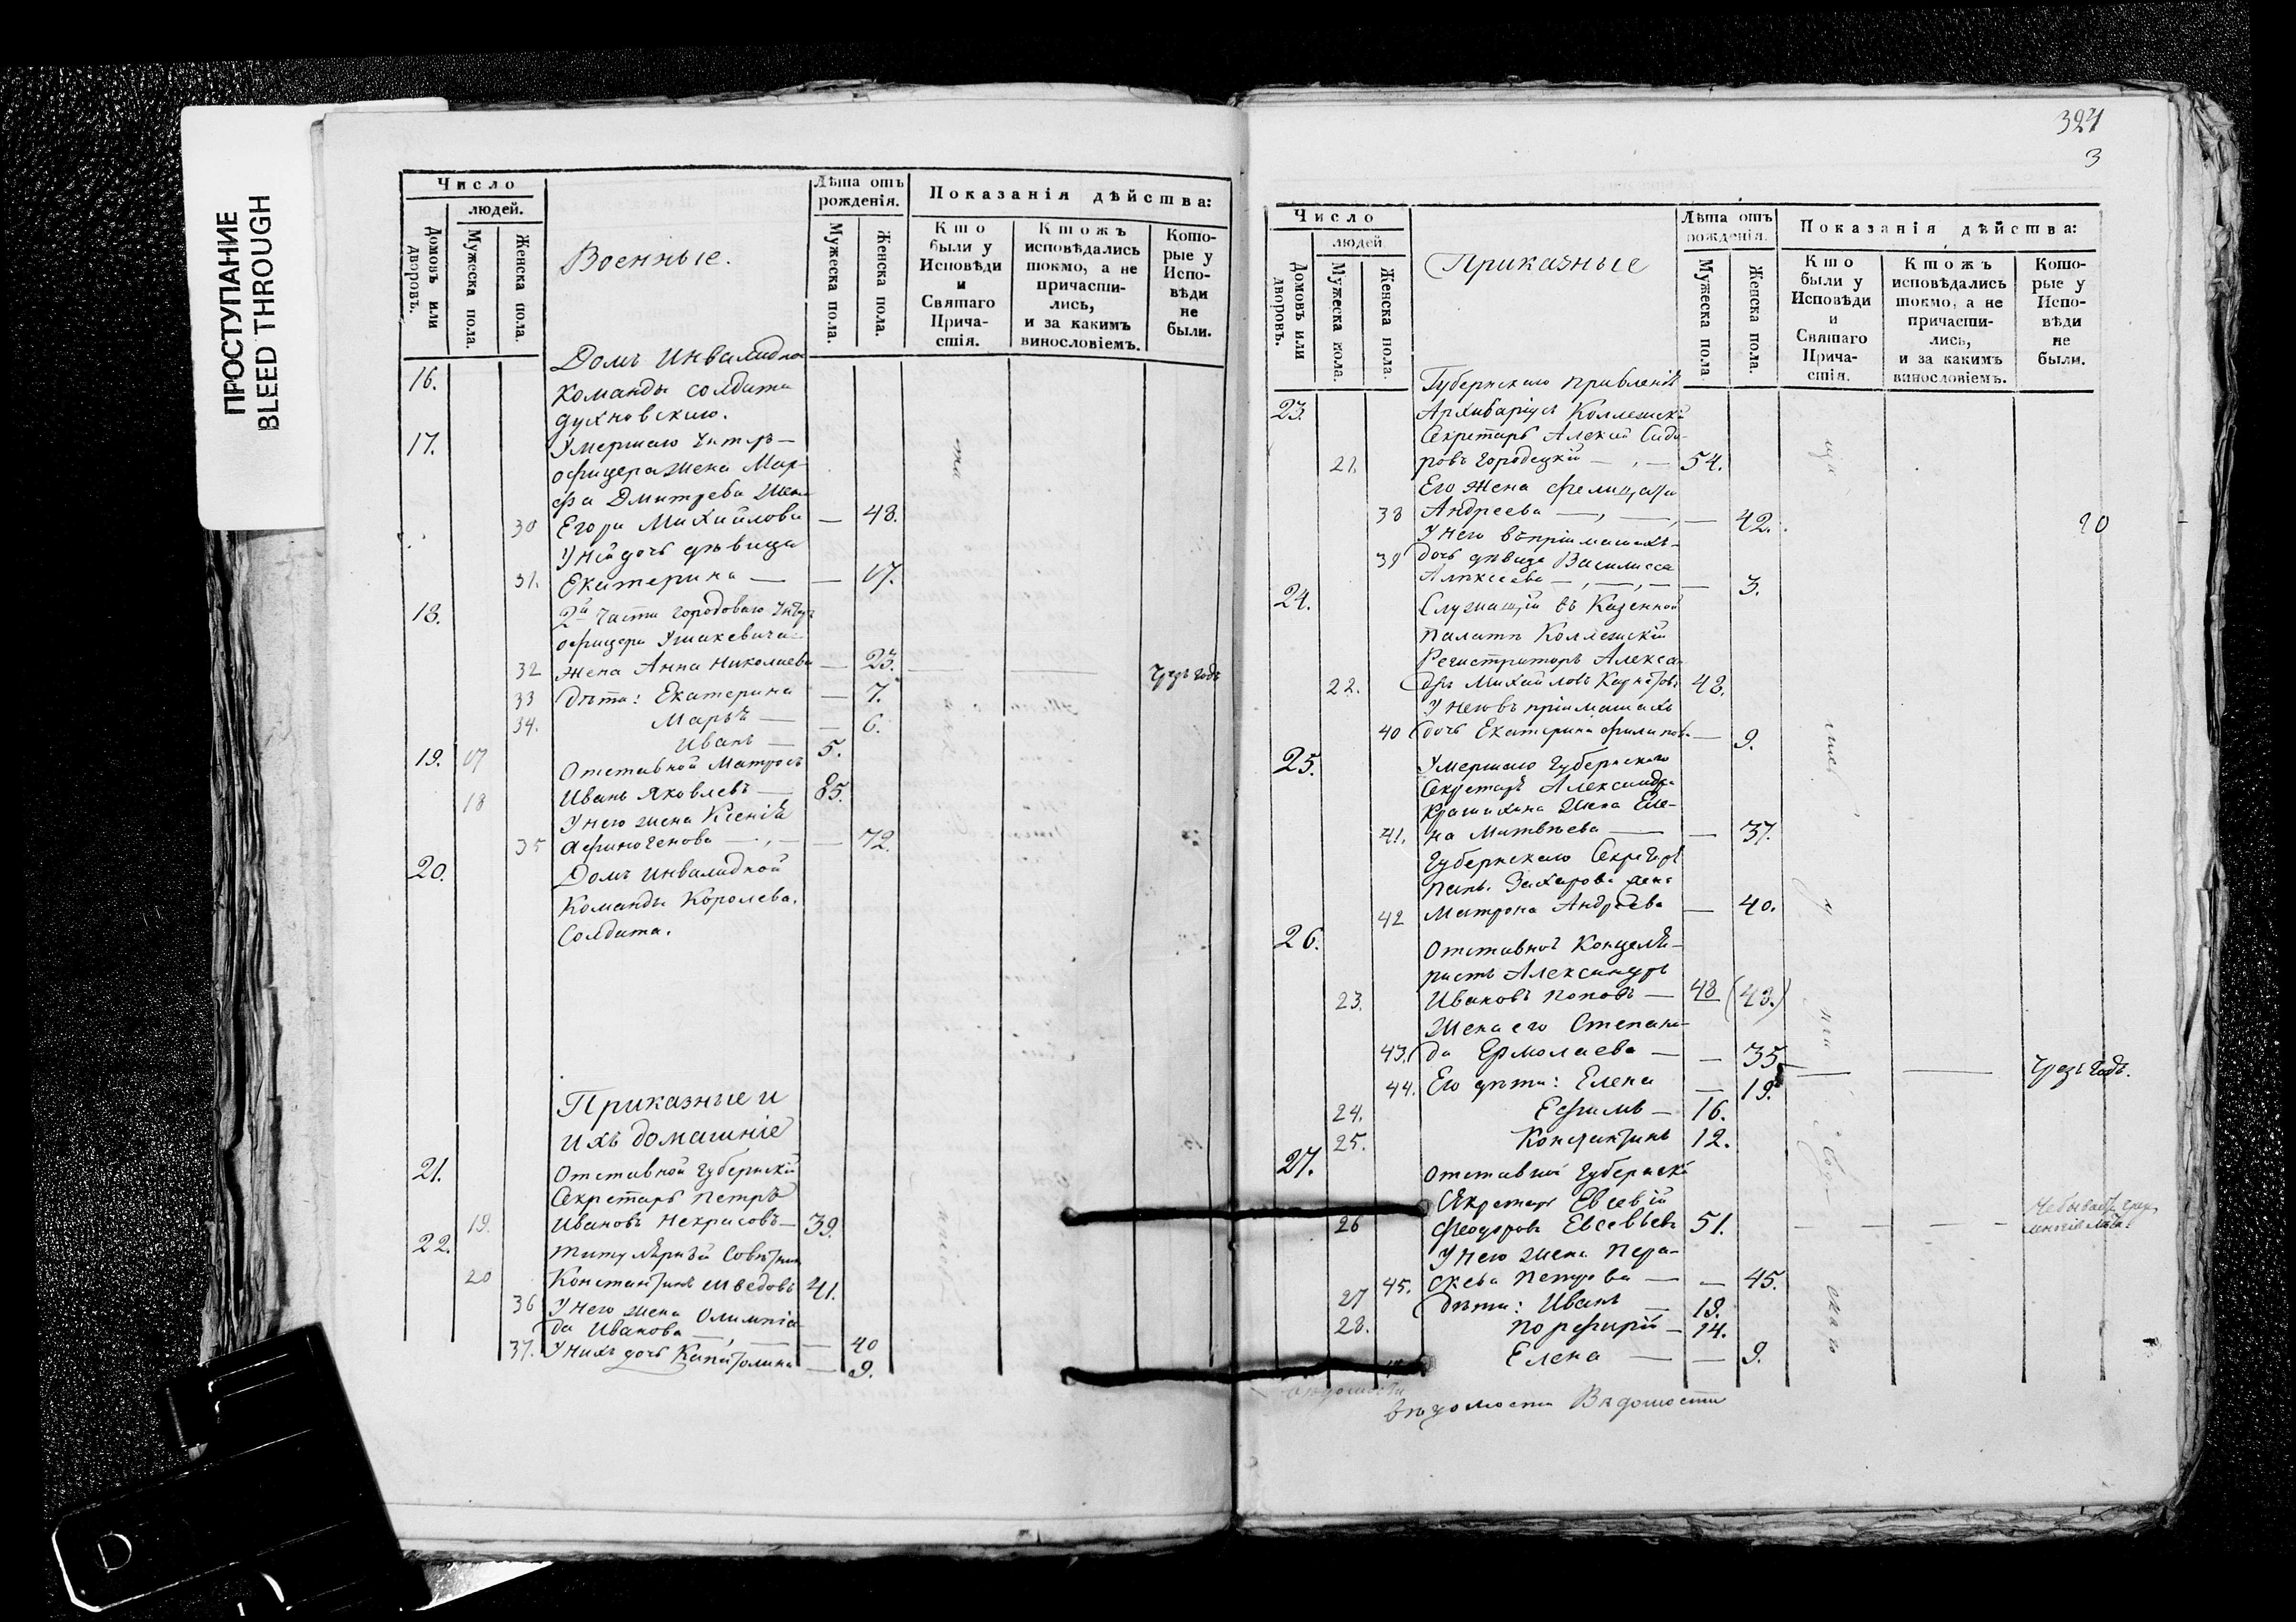 ПРОСТУПАНИЕ
BLEED THROUGH
Число
людей.
Домовъ или дворовъ.
Мужеска пола.
Женска пола.
Военные.
Лѣта отъ рожденія.
Мужеска пола.
Женска пола.
Показанія дѣйства:
Кто были у Исповѣди и Святаго Прича-стія.
Ктожъ исповѣдались токмо, а не причасти-лись, и за какимъ винословіемъ.
Кото-рые у Испо-вѣди не были.
16. Домъ инвалидно
команды солдата
Духновскаго.
17. Умершаго Унтръ-
офицера жена Мар-
фа Дмитрева жена
30 Егора Михайлова — 48.
У ней дочь дѣвица
31. Екатерина — — 17.
18. 2й части городоваго Унтр
офицера
32 жена Анна Николаева — 23. Чрезъ годъ
33 Дѣти: Екатерина — 7.
34. Марья — — 6.
17 Иванъ — 5.
19. Отставной Матросъ
18 Иванъ Яковлевъ — 85.
У него жена Ксенія
35 Афиногенова — — 72.
20. Домъ инвалидной
Команды Королева.
Солдата.
Приказные и
ихъ домашніе
21. Отставной Губернскій
Секретарь Петръ
19. Ивановъ Некрасовъ — 39.
22. Титулярный Совѣтник
20 Константинъ Шведовъ 41.
36 У него жена Олимпіа
да Иванова — — 40
37. У нихъ дочь Капитолина — 9.
324
3
Число
людей
Домовъ или дворовъ.
Мужеска пола.
Женска пола.
Приказные
Лѣта отъ рожденія.
Мужеска пола.
Женска пола.
Показанія дѣйства:
Кто были у Исповѣди и Святаго Прича-стія.
Ктожъ исповѣдались токмо, а не причасти-лись, и за какимъ винословіемъ.
Кото-рые у Испо-вѣди не были.
Губернскаго Правленія
23. Архиваріусъ Коллежскі
Секретарь Алексій Сидо-
21. ровъ Городецкій — 54.
Его жена Фелицата
38 Андреева — — 42. 20
У него въ пріемышахъ
39 дочь дѣвица Василиса
Алексеева — — 3.
24. Служащій въ Казенной
Палатѣ Коллежскій
Регистраторъ Алекса
22. дръ Михайловъ 48.
У него въ пріемышахъ
40 дочь Екатерина Филипова — 9.
25. Умершаго Губернскаго
Секретаря Александра
жена Еле-
41. на Матвѣева — — 37.
Губернскаго Секретаря
Захарова жена
42 Матрона Андреева — 40.
26. Отставной Канцеля-
ристъ Александръ
23. Ивановъ Поповъ — 48 (48.)
Жена его Степани-
43. да Ермолаева — — 35
44. Его дѣти: Елена — 19. Чрезъ годъ.
24. Ефимъ — 16.
25. Константинъ 12.
27. Отставной Губернскі
Секретарь Евсевій
26 Феодоровъ Евсевьевъ 51. Не бываетъ чрез многіе лѣта
У него жена Пара-
45. скева Петрова — — 45.
27 Дѣти: Иванъ — 19.
28. Порфирій — 14.
Елена — — 9.
вѣдомости
вѣдомости Вѣдомости